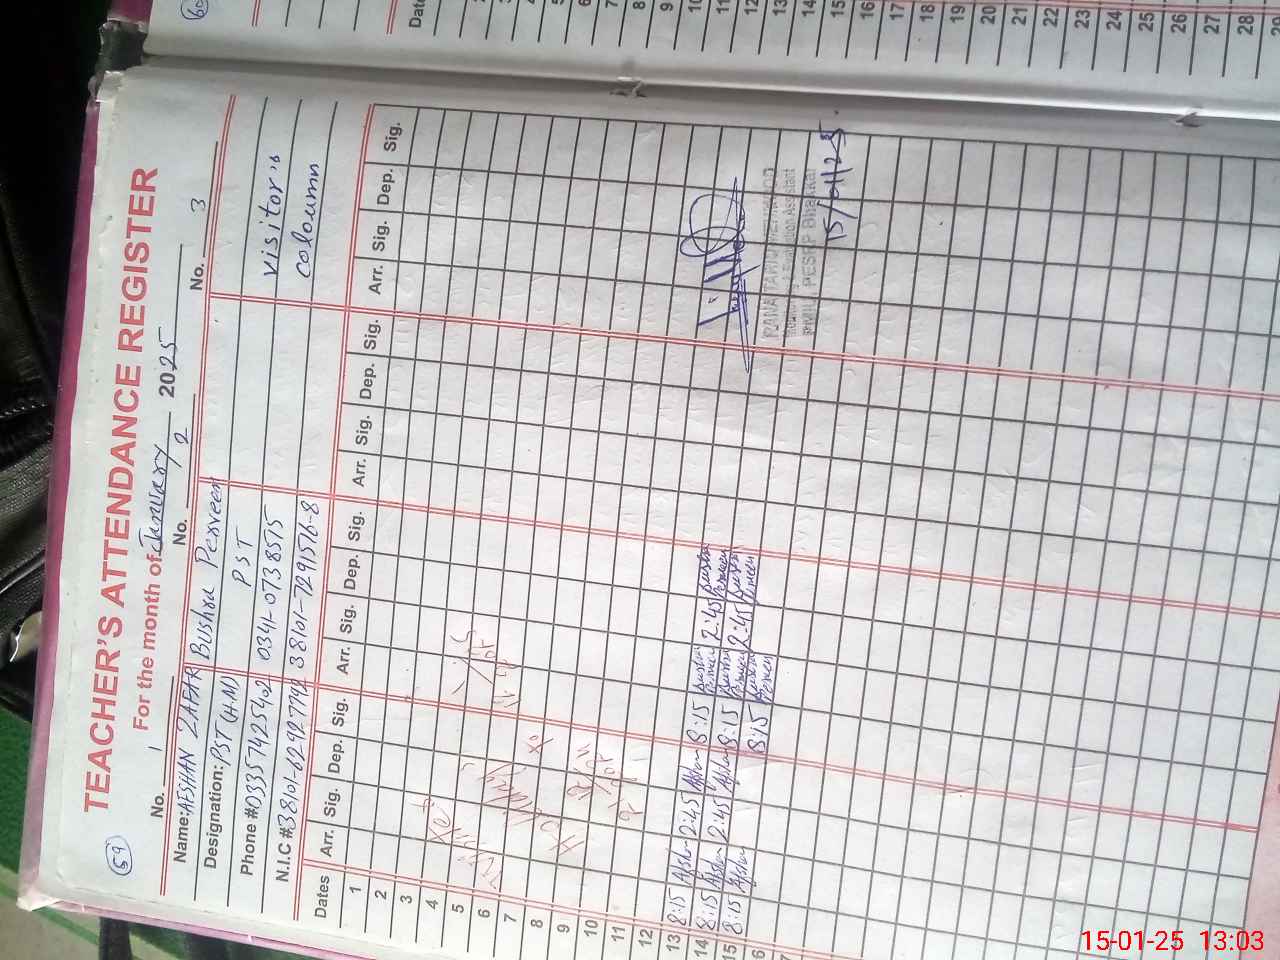 59
TEACHER'S ATTENDANCE REGISTER
For the month of January 2025
No. 1 No. 2 No. 3
Name: AFSHAN ZAFAR Bushra Perveen
Designation: PST (H.N) PST
Phone # 03357425402 0341-0738515 visitor's
N.I.C # 38101-6292779-2 38101-7291576-8 coloumn
Dates Arr. Sig. Dep. Sig. Arr. Sig. Dep. Sig. Arr. Sig. Dep. Sig. Arr. Sig. Dep. Sig.
1
2
3
4
5
6
7
8
9
10
11
12
13 8:15 Afshan 2:45 Afshan 8:15 Bushra Perveen 2:45 Bushra Perveen
14 8:15 Afshan 2:45 Afshan 8:15 Bushra Perveen 2:45 Bushra Perveen
15 8:15 Afshan 8:15 Bushra Perveen
RANA TARIQ MEHMOOD
Monitoring & Evaluation Assistant
PMIU, PESRP Bhakkar
15/01/25
60
Dat
7
8
9
10
11
12
13
14
15
16
17
18
19
20
21
22
23
24
25
26
27
28
15-01-25 13:03